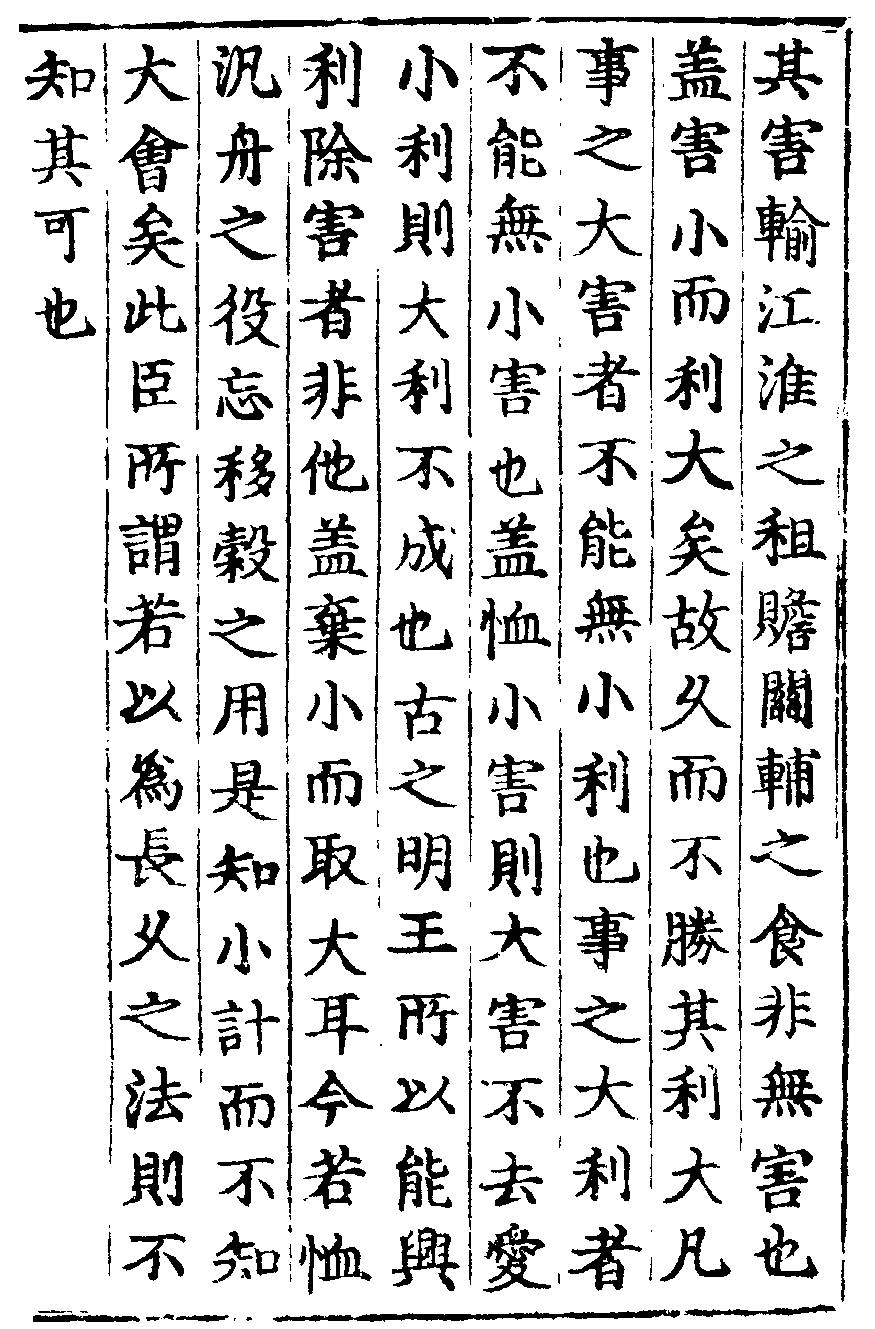 其害輸江淮之租贍關輔之食非無害也
盖害小而利大矣故久而不勝其利大凡
事之大害者不能無小利也事之大利者
不能無小害也盖恤小害則大害不去愛
小利則大利不成也古之明王所以能興
利除害者非他盖棄小而取大耳今若恤
汎舟之役忘移穀之用是知小計而不知
大會矣此臣所謂若以為長久之法則不
知其可也